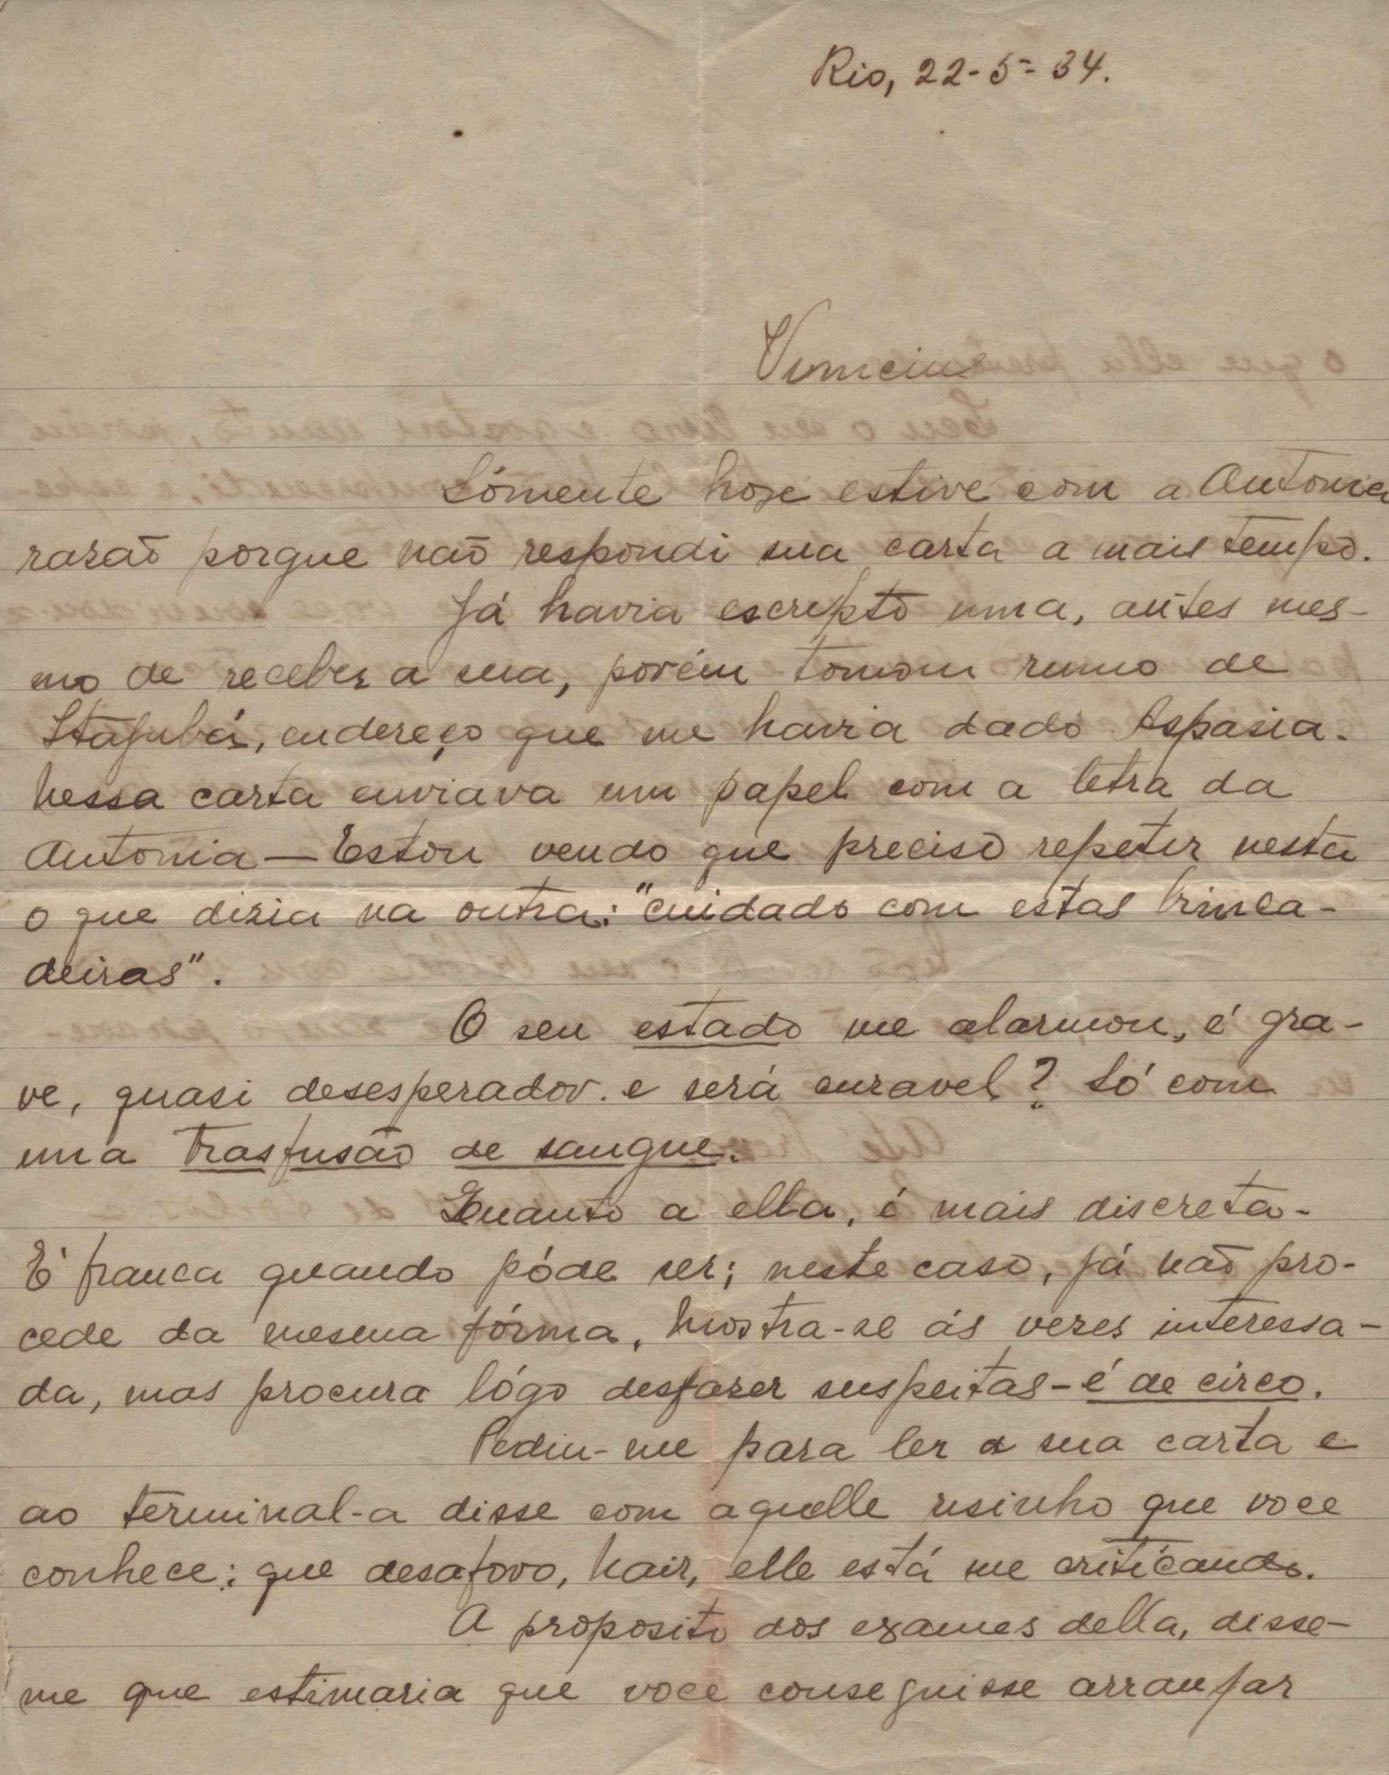 Rio, 22-5-34.
Vinicius
Sómente hoje estive com a Antonia
razaō porque naō respondi sua carta a mais tempo.
Já havia escripto uma, antes mes-
mo de receber a sua, porém tomou rumo de
Itajubá, endereço que me havia dado Aspasia.
Nessa carta enviava um papel com a letra da
Antonia — Estou vendo que preciso repetir nesta
o que dizia na outra: "cuidado com estas brinca-
deiras".
O seu estado me alarmou, é gra-
ve, quasi desesperador. e será curavel? Só com
uma trasfusão de sangue.
Quanto a ella, é mais discreta.
É franca quando póde ser; neste caso, já naō pro-
cede da mesma fórma. Mostra-se ás vezes interessa-
da, mas procura lógo desfazer suspeitas - é de circo.
Pediu-me para ler a sua carta e
ao terminal-a disse com aquelle risinho que voce
conhece: que desaforo, Nair, elle está me criticando.
A proposito dos exames della, disse-
me que estimaria que voce conseguisse arranjar